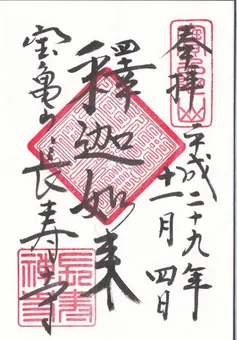 奉拝
平成二十九年
十一月四日
釋迦如来
宝亀山
長寿寺
長寿禅寺